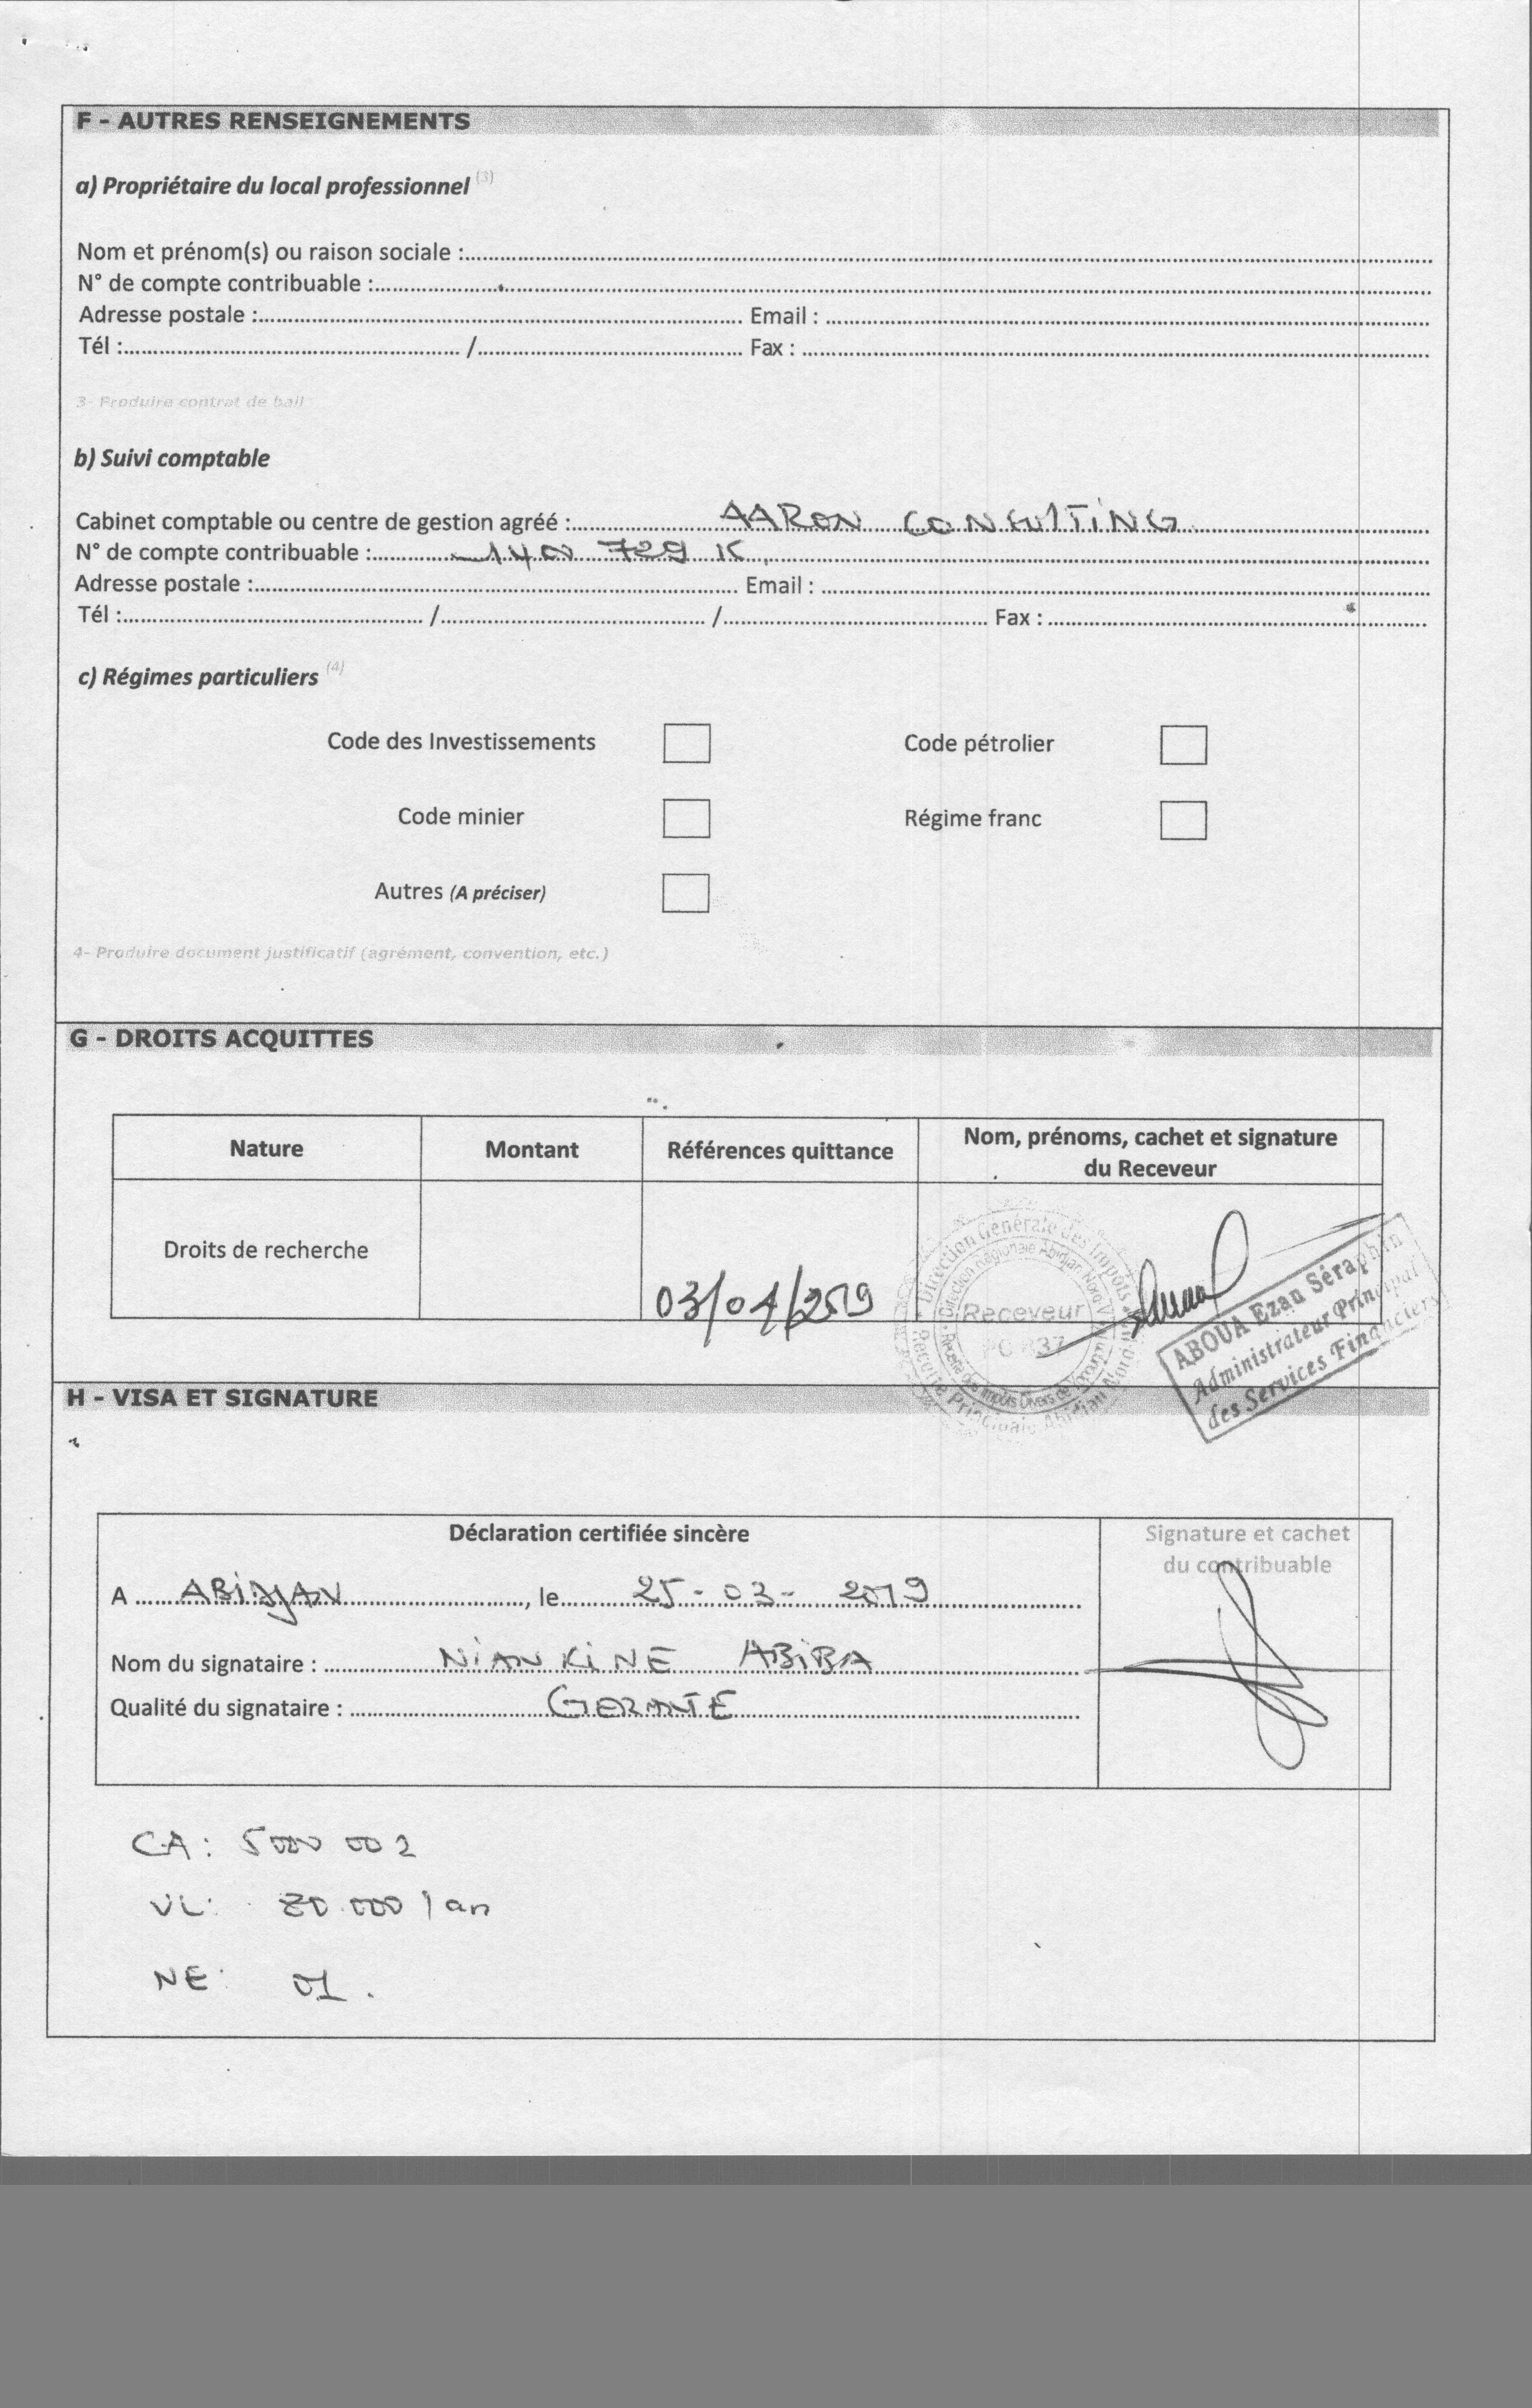 F - AUTRES RENSEIGNEMENTS
a) Propriétaire du local professionnel (3)
Nom et prénom(s) ou raison sociale :
N° de compte contribuable :
Adresse postale : Email :
Tél : / Fax :
3- Produire contrat de bail
b) Suivi comptable
Cabinet comptable ou centre de gestion agréé : AARON CONSULTING
N° de compte contribuable : 729 K
Adresse postale : Email :
Tél : / / Fax :
c) Régimes particuliers (4)
Code des Investissements Code pétrolier
Code minier Régime franc
Autres (A préciser)
4- Produire document justificatif (agrément, convention, etc.)
G - DROITS ACQUITTES
Nature Montant Références quittance Nom, prénoms, cachet et signature
du Receveur
Droits de recherche
03/04/2019
Direction Générale des Impôts
Direction Régionale Abidjan Nord V
Receveur
Recette des Impôts Divers de
Recette Principale Abidjan Nord
ABOUA Ezan Séraphin
Administrateur Principal
des Services Financiers
H - VISA ET SIGNATURE
Déclaration certifiée sincère
Signature et cachet
du contribuable
A ABIDJAN, le 25-03-2019
Nom du signataire : NIANKINE ABIBA
Qualité du signataire : GERANTE
CA : 5000 002
VL : 80.000 / an
NE : 01.